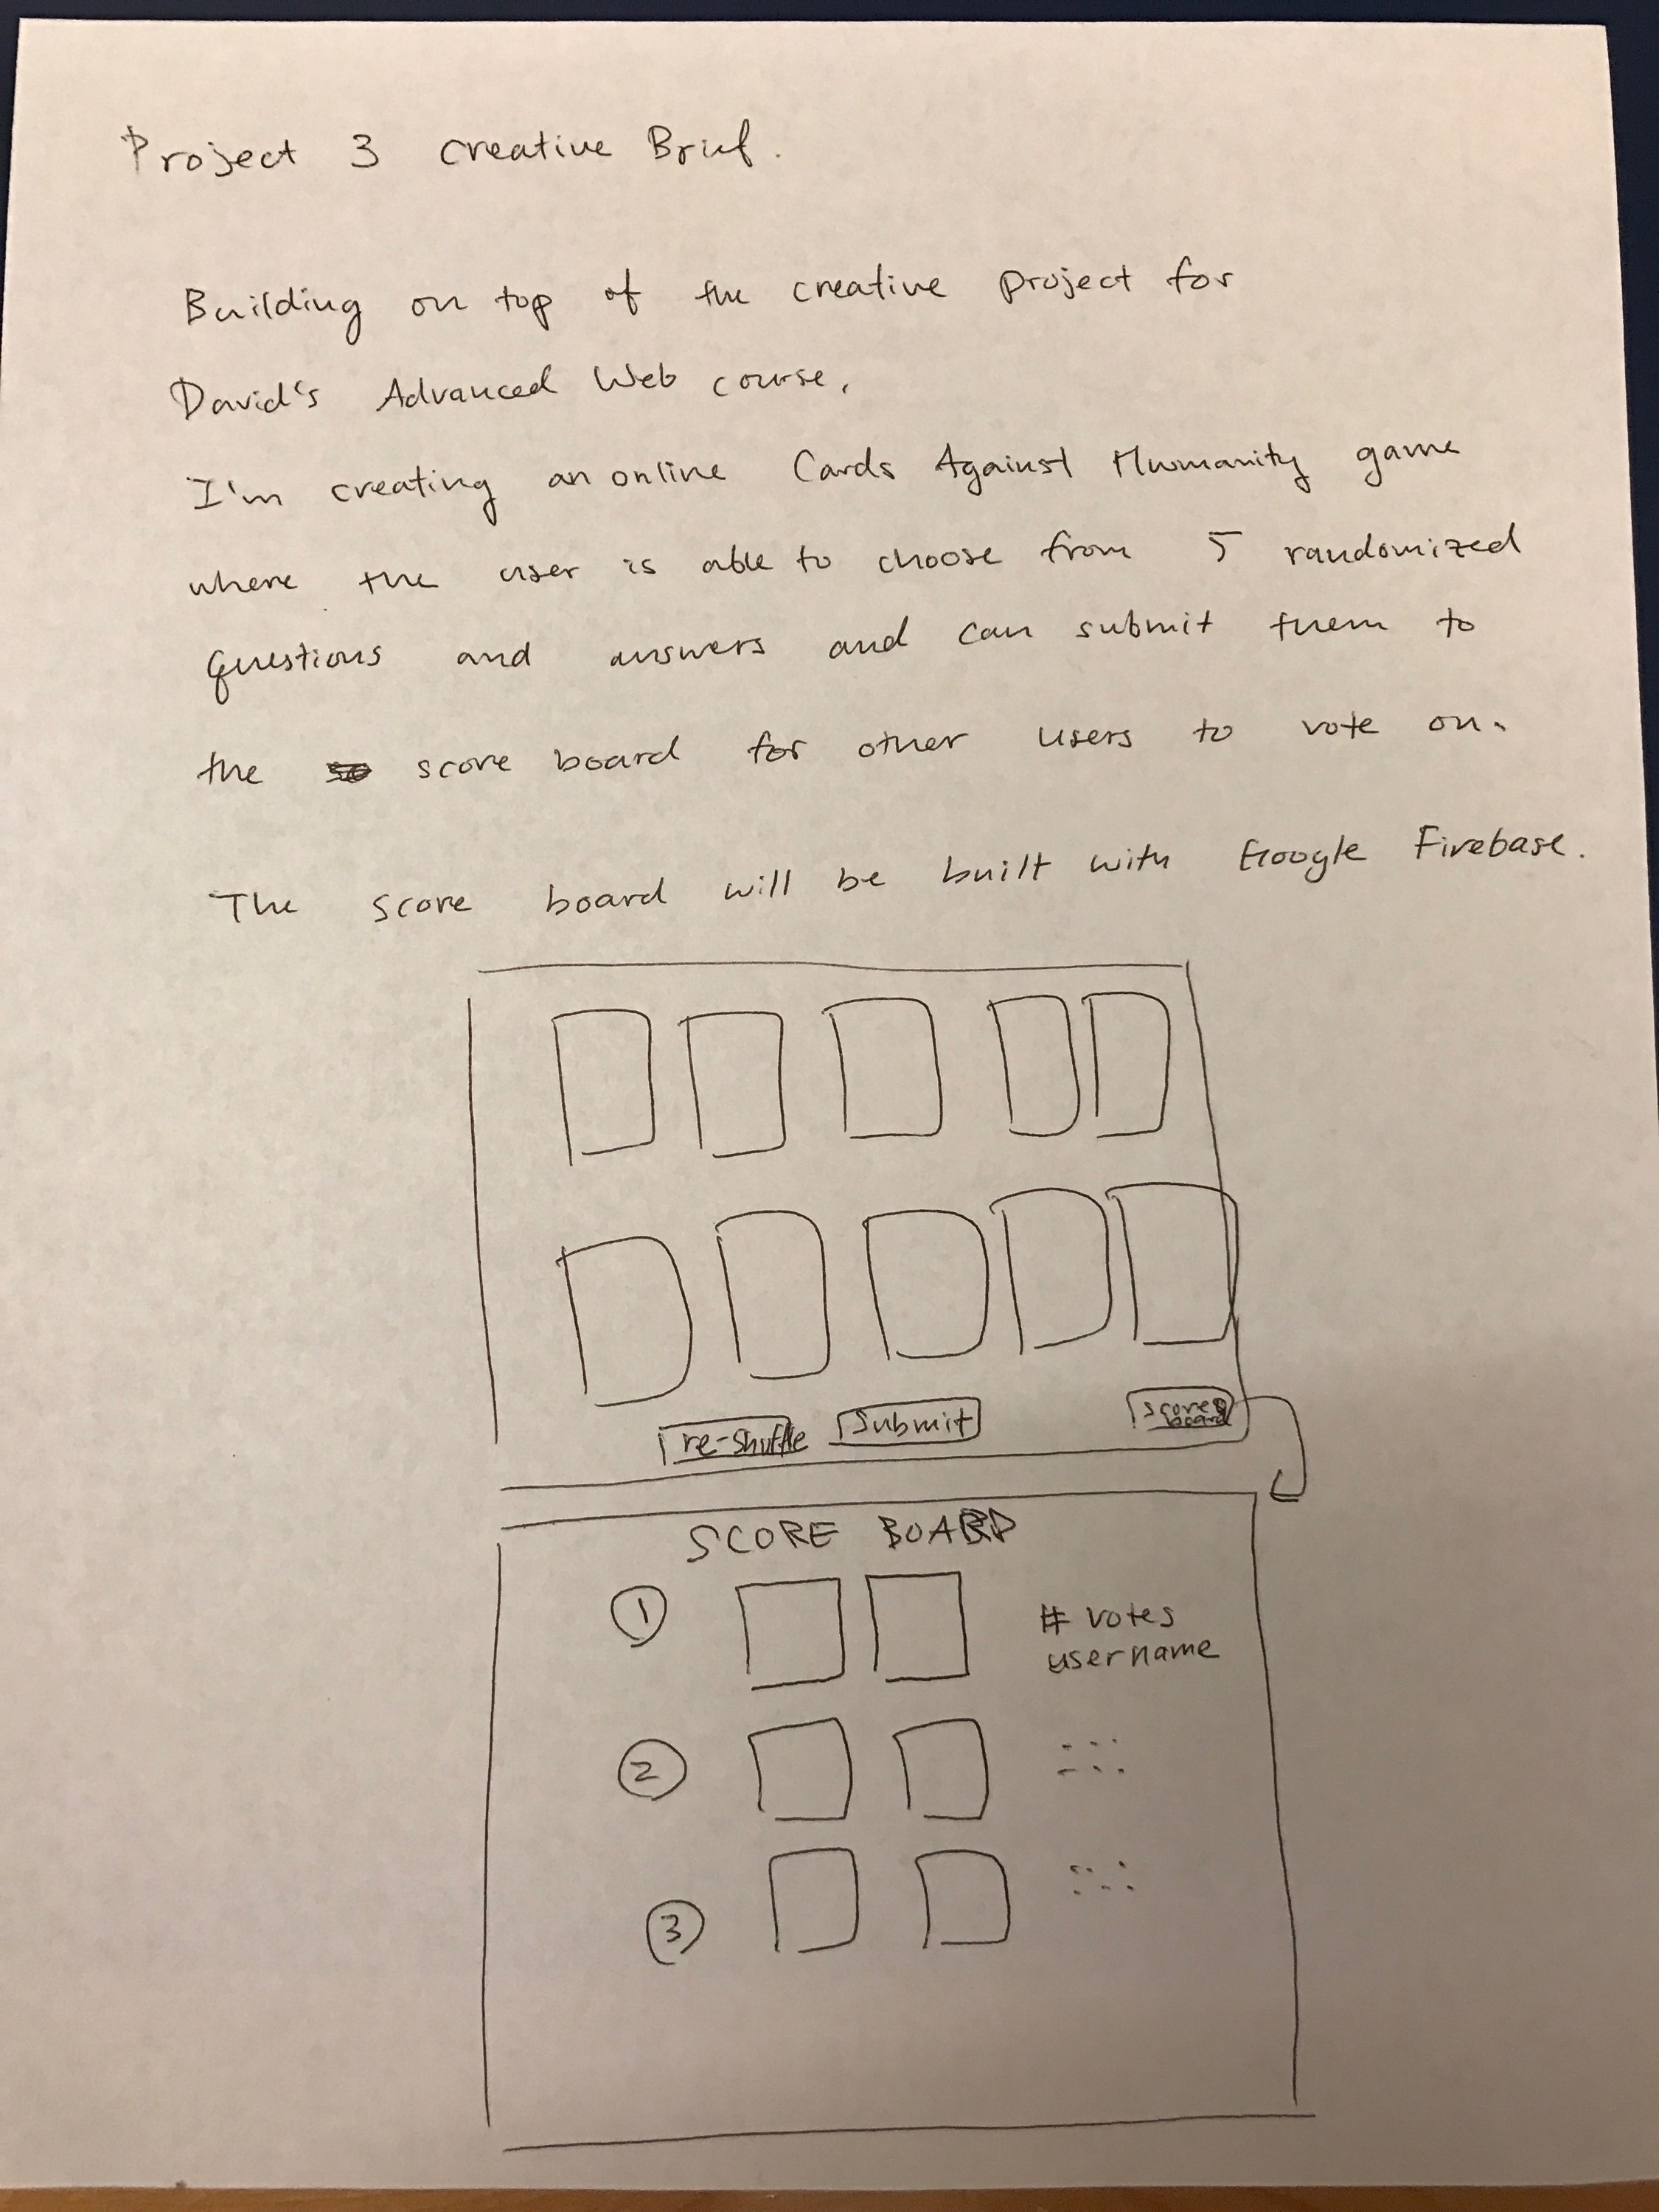 Project 3 Creative Brief.
Building on top of the creative project for
David's Advanced Web course.
I'm creating an online Cards Against Humanity game
where the user is able to choose from 5 randomized
questions and answers and can submit them to
the score board for other users to vote on.
The score board will be built with Google Firebase.
re-shuffle submit score board
SCORE BOARD
1
# votes
username
2
3